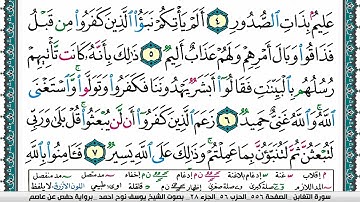 عَلِيمٌۢ بِذَاتِ ٱلصُّدُورِ ٤ أَلَمْ يَأْتِكُمْ نَبَؤُا۟ ٱلَّذِينَ كَفَرُوا۟ مِن قَبْلُ
فَذَاقُوا۟ وَبَالَ أَمْرِهِمْ وَلَهُمْ عَذَابٌ أَلِيمٌ ٥ ذَٰلِكَ بِأَنَّهُۥ كَانَت تَّأْتِيهِمْ
رُسُلُهُم بِٱلْبَيِّنَٰتِ فَقَالُوٓا۟ أَبَشَرٌ يَهْدُونَنَا فَكَفَرُوا۟ وَتَوَلَّوا۟ وَّٱسْتَغْنَى
ٱللَّهُ وَٱللَّهُ غَنِىٌّ حَمِيدٌ ٦ زَعَمَ ٱلَّذِينَ كَفَرُوٓا۟ أَن لَّن يُبْعَثُوا۟ قُلْ بَلَىٰ وَرَبِّى
لَتُبْعَثُنَّ ثُمَّ لَتُنَبَّؤُنَّ بِمَا عَمِلْتُمْ وَذَٰلِكَ عَلَى ٱللَّهِ يَسِيرٌ ٧ فَـَٔامِنُوا۟ بِٱللَّهِ
سورة التغابن الصفحة ٥٥٦ الحزب ٥٦ الجزء ٢٨ بصوت الشيخ يوسف نوح احمد برواية حفص عن عاصم